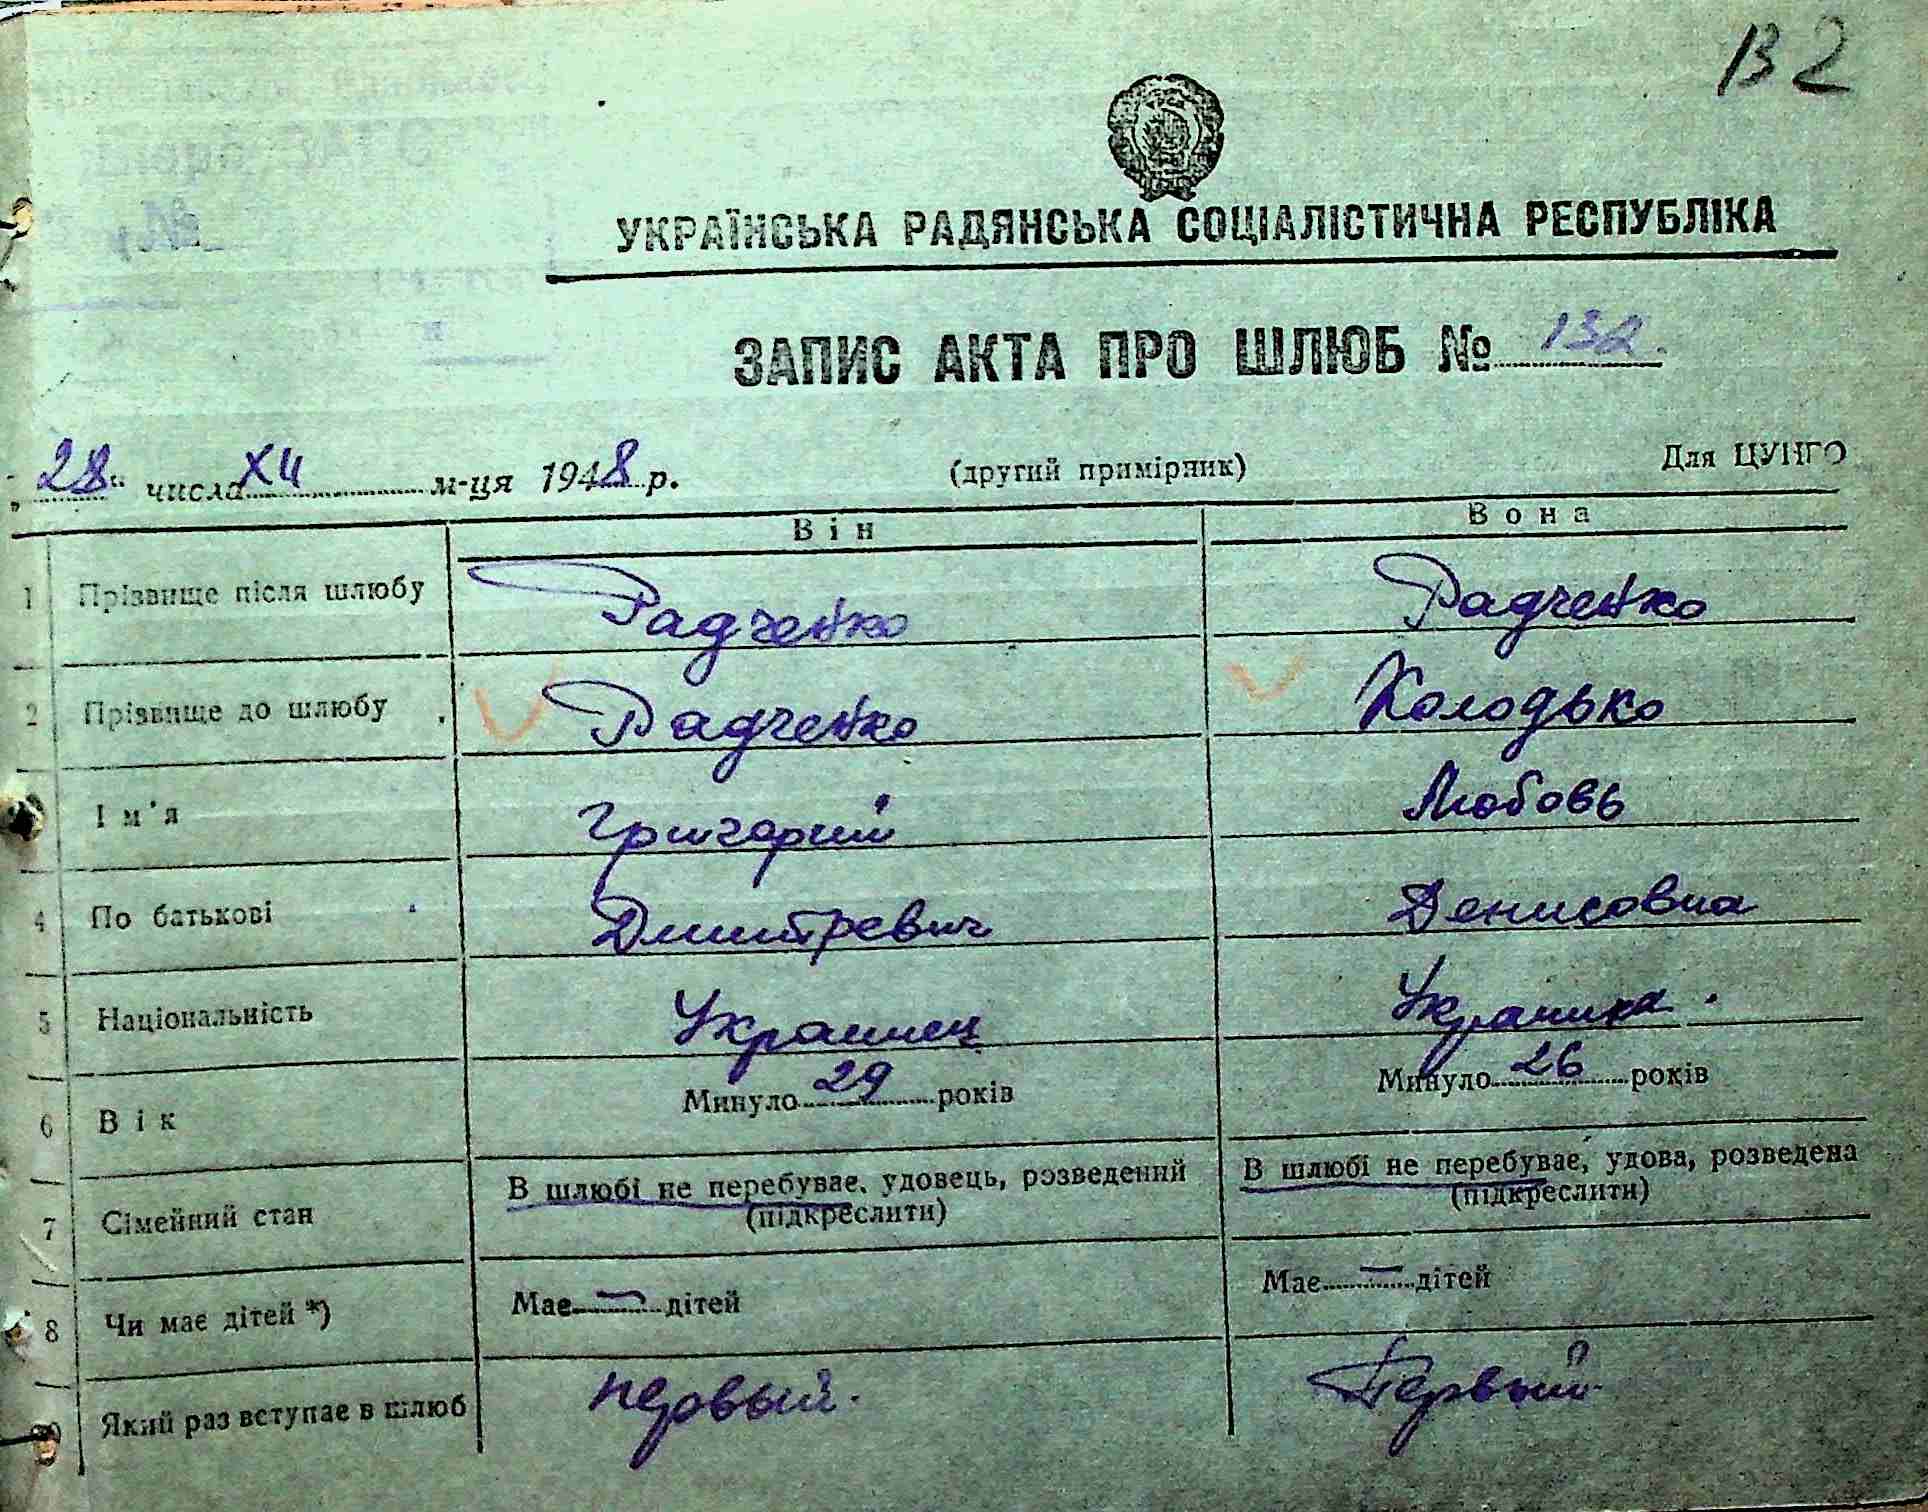 В 2
УКРАЇНСЬКА РАДЯНСЬКА СОЦІАЛІСТИЧНА РЕСПУБЛІКА
ЗАПИС АКТА ПРО ШЛЮБ № 132.
„28" числа XII м-ця 1948 р. (другий примірник) Для ЦУНГО
Він Вона
1 Прізвище після шлюбу Радченко Радченко
2 Прізвище до шлюбу Радченко Колодько
Ім'я Григорий Любовь
4 По батькові Дмитревич Денисовна
5 Національність Украинец Украинка.
6 Вік Минуло 29 років Минуло 26 років
7 Сімейний стан В шлюбі не перебуває, удовець, розведений В шлюбі не перебуває, удова, розведена
(підкреслити) (підкреслити)
8 Чи має дітей *) Має — дітей Має — дітей
9 Який раз вступає в шлюб первый. Первый.